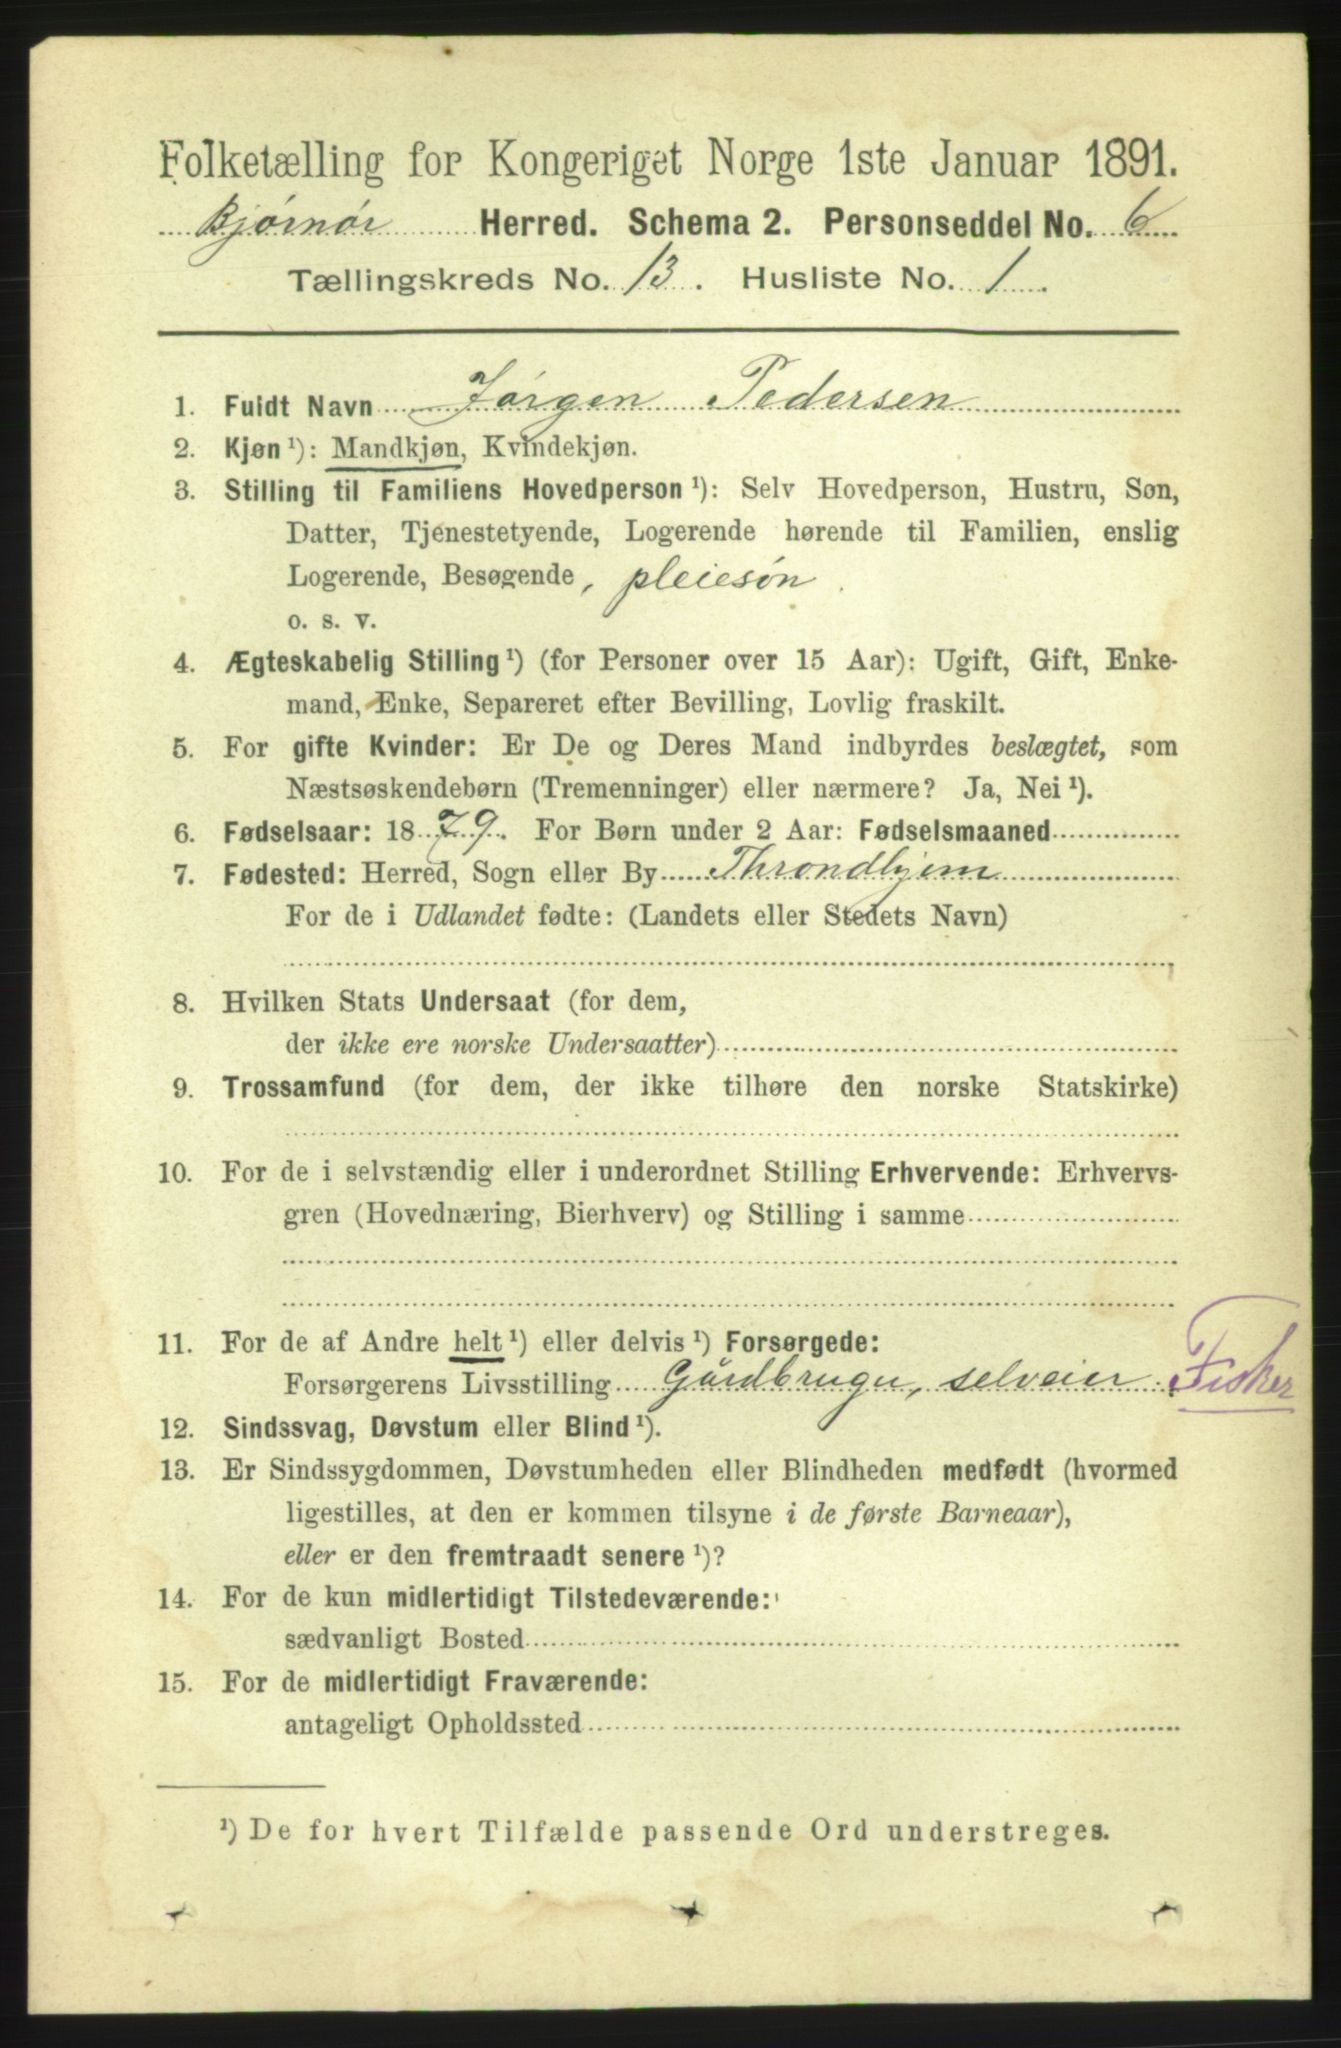 Folketælling for Kongeriget Norge 1ste Januar 1891.
Bjørnør Herred. Schema 2. Personseddel No. 6
Tællingskreds No. 13. Husliste No. 1.
1. Fuldt Navn Jørgen Pedersen
2. Kjøn ¹): Mandkjøn, Kvindekjøn.
3. Stilling til Familiens Hovedperson ¹): Selv Hovedperson, Hustru, Søn,
Datter, Tjenestetyende, Logerende hørende til Familien, enslig
Logerende, Besøgende, pleiesøn
o. s. v.
4. Ægteskabelig Stilling ¹) (for Personer over 15 Aar): Ugift, Gift, Enke-
mand, Enke, Separeret efter Bevilling, Lovlig fraskilt.
5. For gifte Kvinder: Er De og Deres Mand indbyrdes beslægtet, som
Næstsøskendebørn (Tremenninger) eller nærmere? Ja, Nei ¹).
6. Fødselsaar: 1879. For Børn under 2 Aar: Fødselsmaaned
7. Fødested: Herred, Sogn eller By Throndhjem
For de i Udlandet fødte: (Landets eller Stedets Navn)
8. Hvilken Stats Undersaat (for dem,
der ikke ere norske Undersaatter)
9. Trossamfund (for dem, der ikke tilhøre den norske Statskirke)
10. For de i selvstændig eller i underordnet Stilling Erhvervende: Erhvervs-
gren (Hovednæring, Bierhverv) og Stilling i samme
11. For de af Andre helt ¹) eller delvis ¹) Forsørgede:
Forsørgerens Livsstilling Gårdbruger, selveier Fisker
12. Sindssvag, Døvstum eller Blind ¹).
13. Er Sindssygdommen, Døvstumheden eller Blindheden medfødt (hvormed
ligestilles, at den er kommen tilsyne i de første Barneaar),
eller er den fremtraadt senere ¹)?
14. For de kun midlertidigt Tilstedeværende:
sædvanligt Bosted
15. For de midlertidigt Fraværende:
antageligt Opholdssted
¹) De for hvert Tilfælde passende Ord understreges.